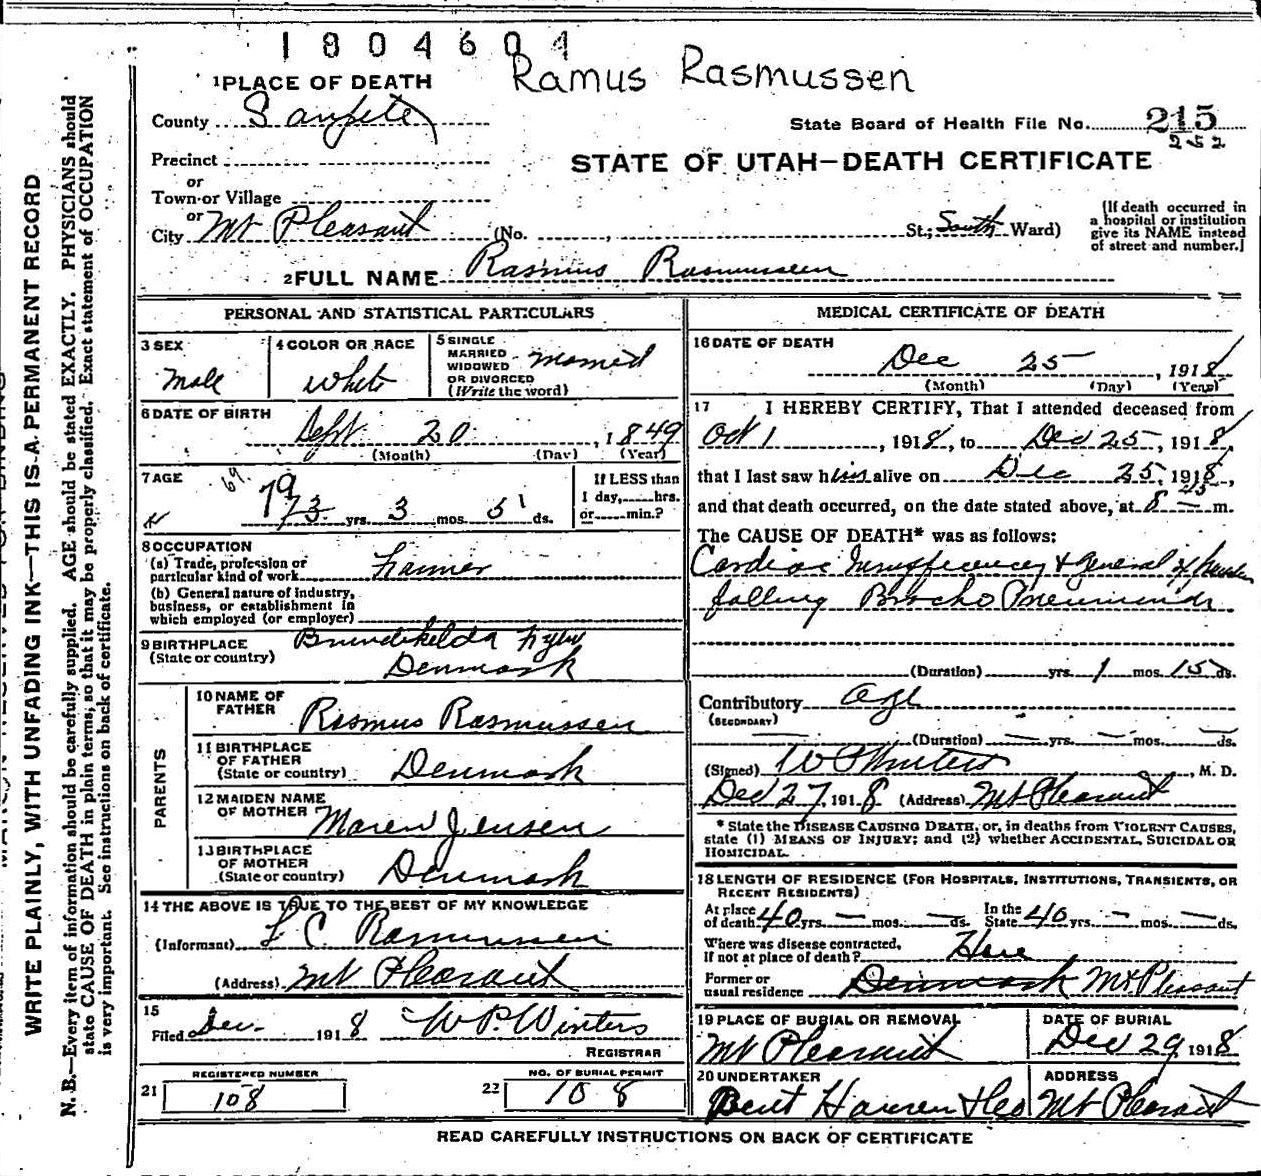 1804604
Ramus Rasmussen
1 PLACE OF DEATH
County Sanpete
State Board of Health File No. 215
252
Precinct
STATE OF UTAH—DEATH CERTIFICATE
or
Town or Village
or
City Mt Pleasant (No. , St.; South Ward)
(If death occurred in
a hospital or institution
give its NAME instead
of street and number.)
2 FULL NAME Rasmus Rasmussen
PERSONAL AND STATISTICAL PARTICULARS
3 SEX
Male
4 COLOR OR RACE
White
5 SINGLE
MARRIED
WIDOWED
OR DIVORCED
(Write the word)
Married
6 DATE OF BIRTH
Sept 20, 1849
(Month) (Day) (Year)
7 AGE
69
79
73 yrs. 3 mos. 5 ds.
If LESS than
1 day, hrs.
or min.?
8 OCCUPATION
(a) Trade, profession or
particular kind of work Farmer
(b) General nature of industry,
business, or establishment in
which employed (or employer)
9 BIRTHPLACE
(State or country)
Denmark
PARENTS
10 NAME OF
FATHER Rasmus Rasmussen
11 BIRTHPLACE
OF FATHER
(State or country) Denmark
12 MAIDEN NAME
OF MOTHER Maren Jensen
13 BIRTHPLACE
OF MOTHER
(State or country) Denmark
14 THE ABOVE IS TRUE TO THE BEST OF MY KNOWLEDGE
(Informant) L C. Rasmussen
(Address) Mt Pleasant
15
Filed Dec. 1918 W.P. Winters
REGISTRAR
21 REGISTERED NUMBER
108
22 NO. OF BURIAL PERMIT
108
MEDICAL CERTIFICATE OF DEATH
16 DATE OF DEATH
Dec 25, 1918
(Month) (Day) (Year)
17 I HEREBY CERTIFY, That I attended deceased from
Oct 1, 1918, to Dec 25, 1918,
that I last saw him alive on Dec 25, 1918,
and that death occurred, on the date stated above, at 8 45 m.
The CAUSE OF DEATH* was as follows:
Cardiac Insufficiency & general
Broncho Pneumonia
(Duration) yrs. 1 mos. 15 ds.
Contributory Age
(SECONDARY)
(Duration) — yrs. — mos. — ds.
(Signed) W P Winters, M. D.
Dec 27, 1918 (Address) Mt Pleasant
* State the DISEASE CAUSING DEATH, or, in deaths from VIOLENT CAUSES,
state (1) MEANS OF INJURY; and (2) whether ACCIDENTAL, SUICIDAL OR
HOMICIDAL.
18 LENGTH OF RESIDENCE (FOR HOSPITALS, INSTITUTIONS, TRANSIENTS, OR
RECENT RESIDENTS)
At place
of death 40 yrs. — mos. — ds. In the
State 40 yrs. — mos. — ds.
Where was disease contracted,
If not at place of death? Here
Former or
usual residence Denmark Mt. Pleasant
19 PLACE OF BURIAL OR REMOVAL
Mt Pleasant
DATE OF BURIAL
Dec 29, 1918
20 UNDERTAKER
Bent Hansen & Co
ADDRESS
Mt Pleasant
READ CAREFULLY INSTRUCTIONS ON BACK OF CERTIFICATE
WRITE PLAINLY, WITH UNFADING INK—THIS IS A PERMANENT RECORD
N. B.—Every item of information should be carefully supplied. AGE should be stated EXACTLY. PHYSICIANS should
state CAUSE OF DEATH in plain terms, so that it may be properly classified. Exact statement of OCCUPATION
is very important. See instructions on back of certificate.